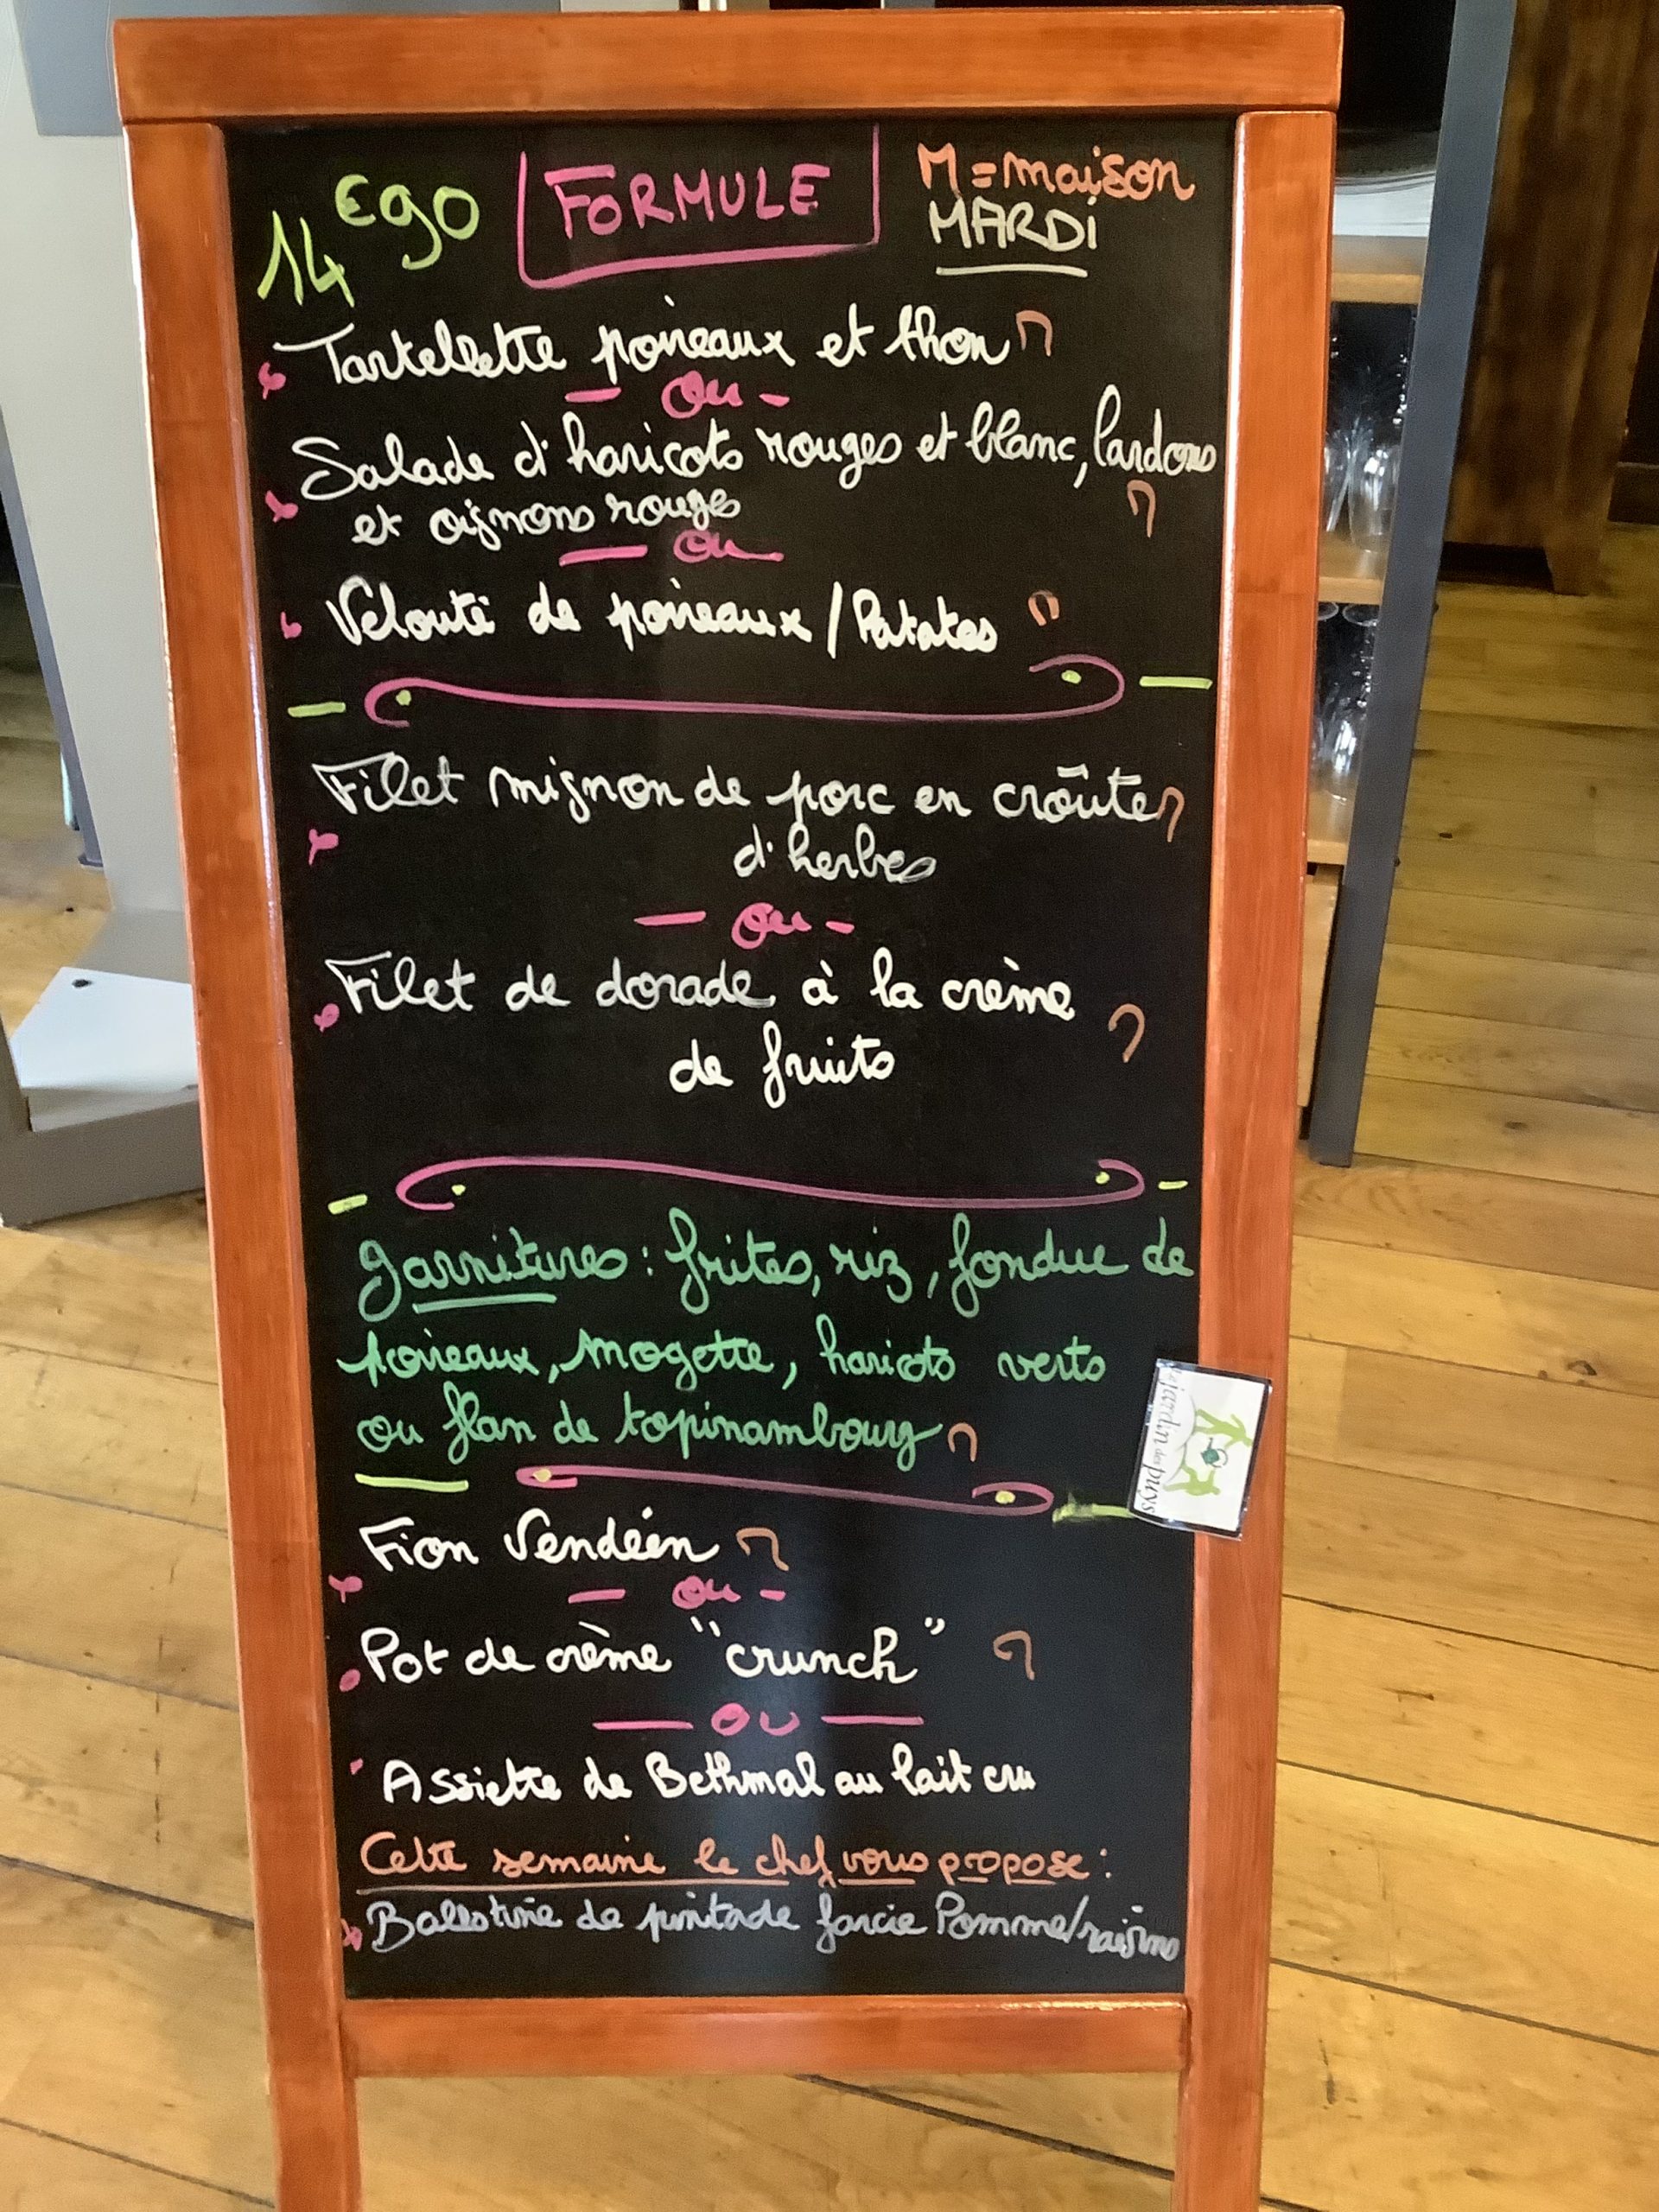 14€90 FORMULE M=maison
MARDI
Tartelette poireaux et thon M
- ou -
Salade d'haricots rouges et blanc, lardons
et oignons rouges M
- ou -
Velouté de poireaux / Patates M
Filet mignon de porc en croûte M
d'herbes
- ou -
Filet de dorade à la crème M
de fruits
Garnitures : frites, riz, fondue de
poireaux, mogette, haricots verts
ou flan de topinambourg M
Fion Vendéen M
- ou -
Pot de crème "crunch" M
- OU -
Assiette de Bethmal au lait cru
Cette semaine le chef vous propose :
Ballotine de pintade farcie Pomme/raisins
le jardin des puys